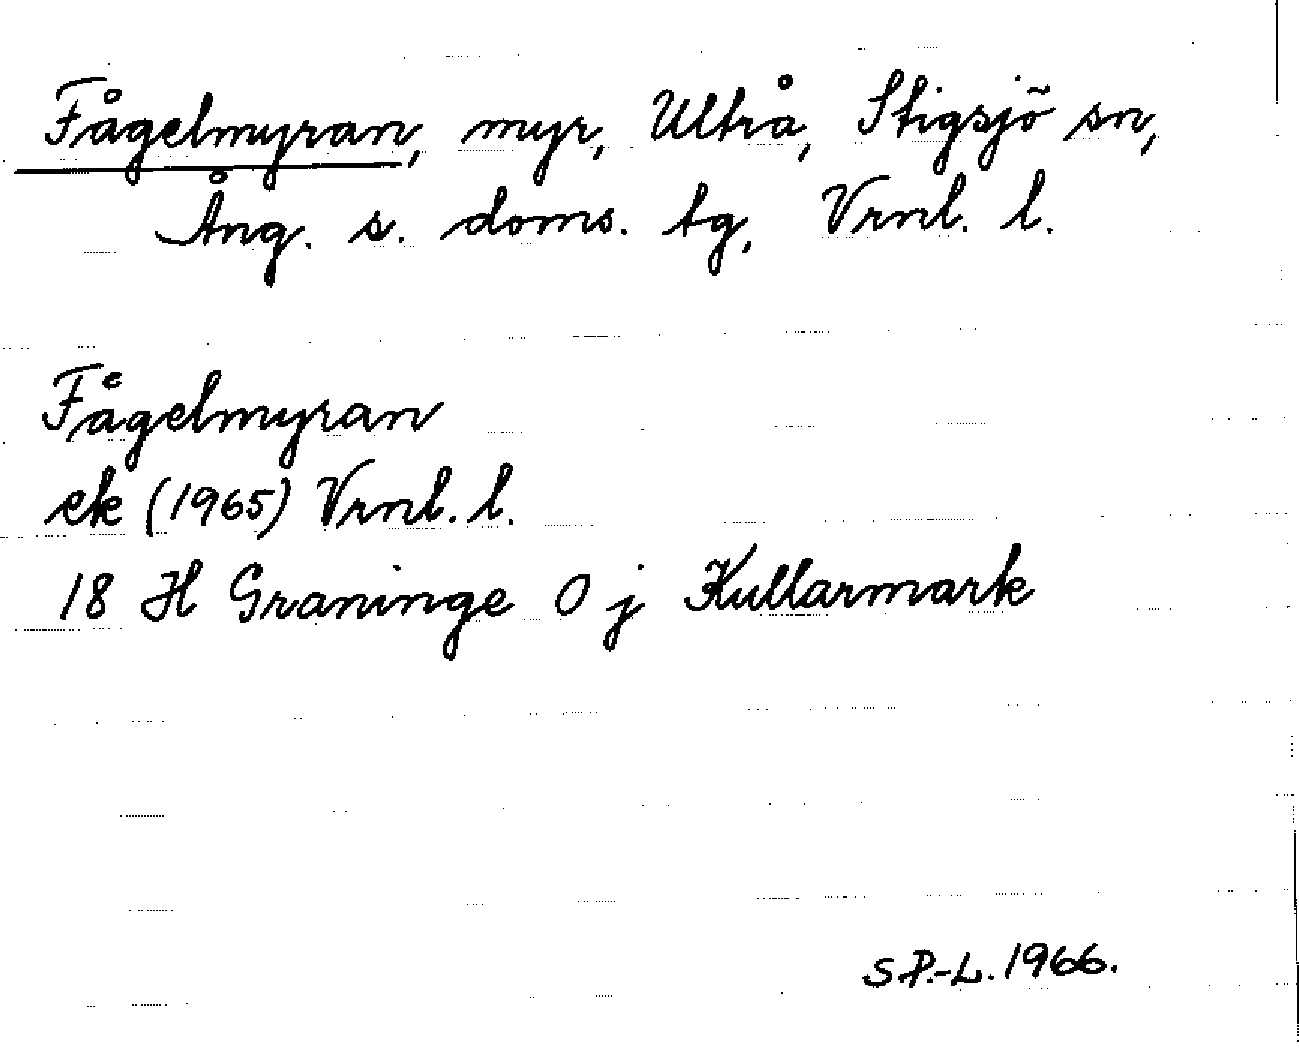 Fågelmyran, myr, Ultrå, Stigsjö sn,
Ång. s. doms. tg, Vrnl. l.
Fågelmyran
ek (1965) Vrnl. l.
18 H Graninge 0 j Kullarmark
S.P.-L. 1966.